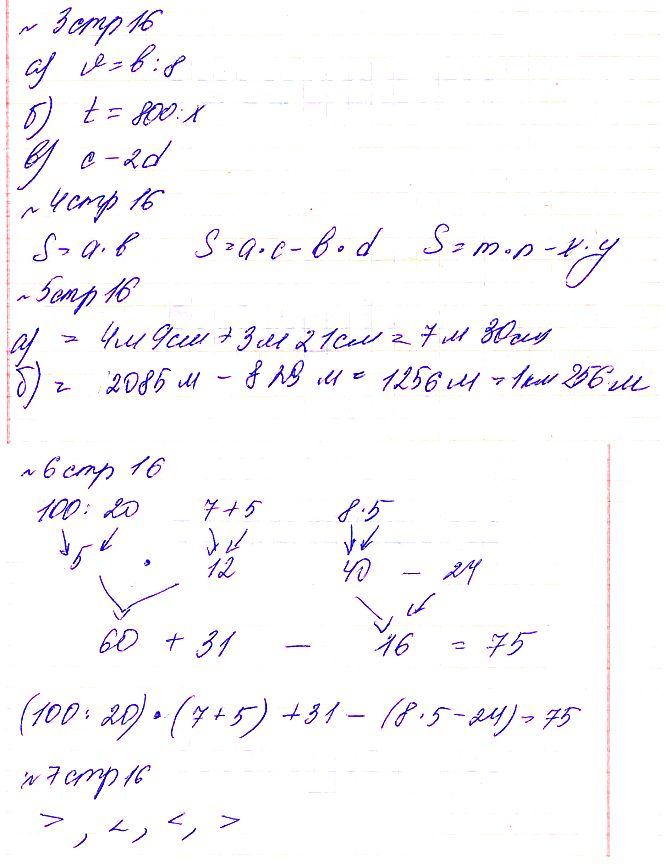 ~ 3 стр 16
а) v = b : 8
б) t = 800 : x
в) c - 2d
~ 4 стр 16
S = a · b S = a · c - b · d S = m · n - x · y
~ 5 стр 16
а) = 4м 9см + 3м 21см = 7 м 30см
б) = 2085 м - 829 м = 1256 м = 1км 256 м
~ 6 стр 16
100 : 20 7 + 5 8 · 5
5 · 12 40 - 24
60 + 31 - 16 = 75
(100 : 20) · (7 + 5) + 31 - (8 · 5 - 24) = 75
~ 7 стр 16
> , < , < , >